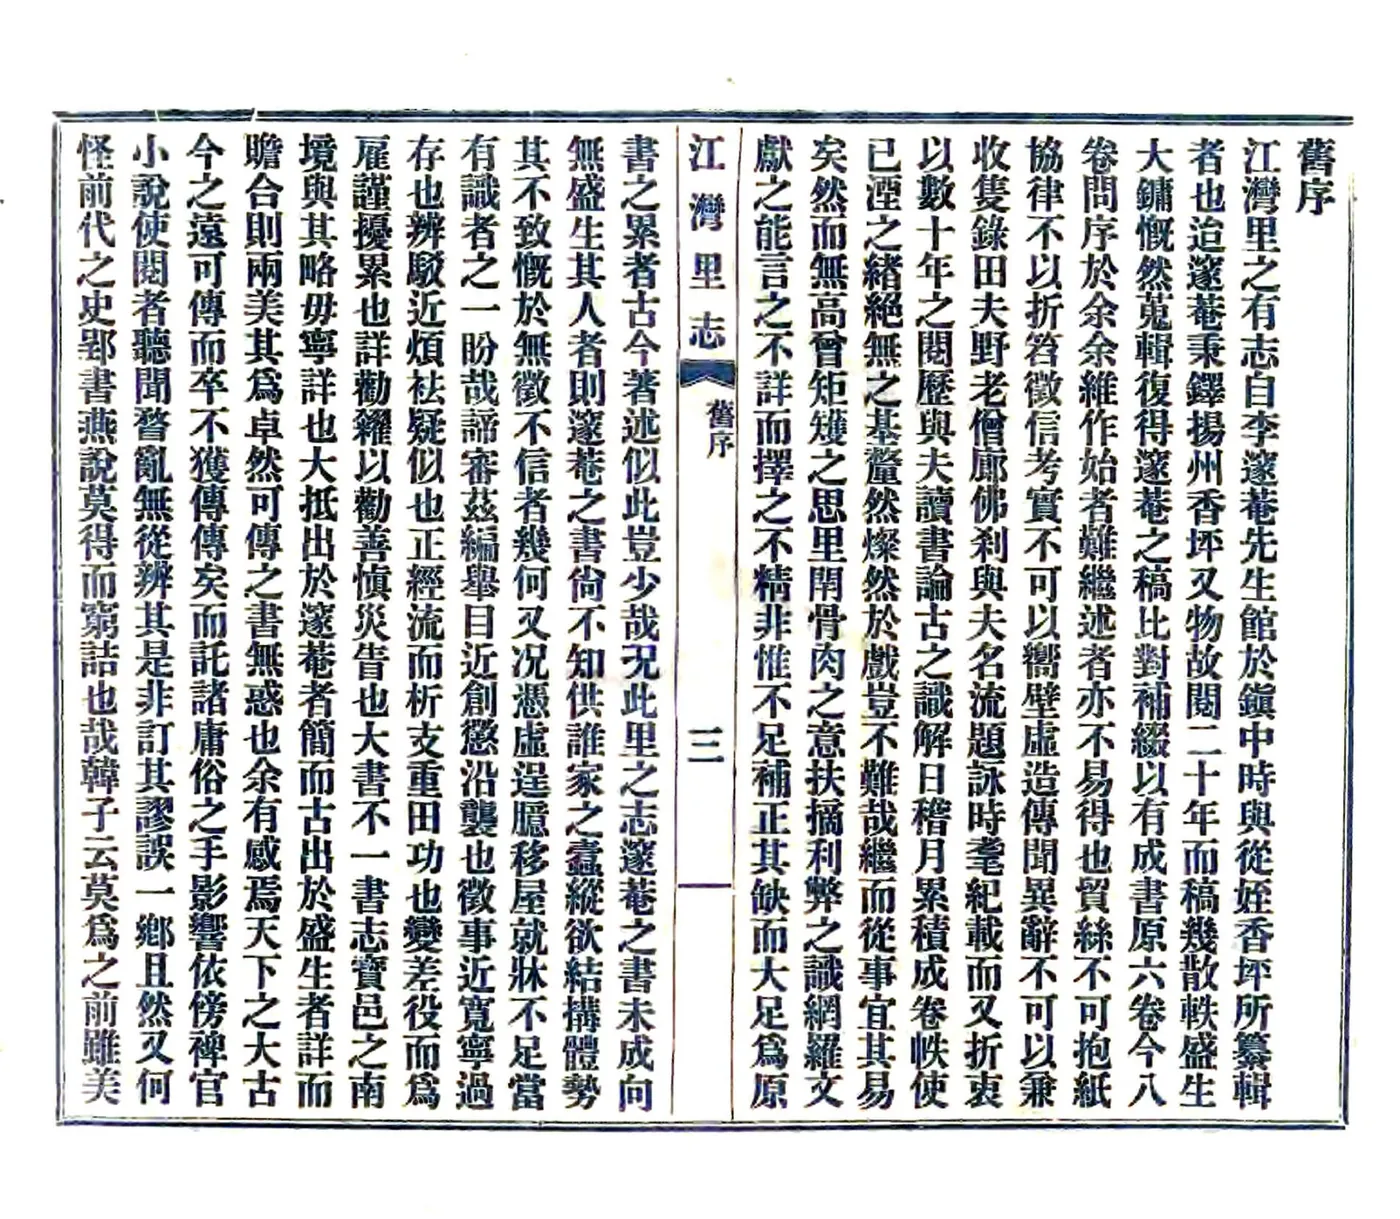 舊序
江灣里之有志自李邃菴先生館於鎭中時與從姪香坪所纂輯
者也迨邃菴秉鐸揚州香坪又物故閱二十年而稿幾散軼盛生
大鏞慨然蒐輯復得邃菴之稿比對補綴以有成書原六卷今八
卷問序於余余維作始者難繼述者亦不易得也貿絲不可抱紙
協律不以折笞徵信考實不可以嚮壁虛造傳聞異辭不可以兼
收隻錄田夫野老僧廊佛刹與夫名流題詠時耄紀載而又折衷
以數十年之閱歷與夫讀書論古之識解日稽月累積成卷帙使
已湮之緒絕無之基釐然燦然於戲豈不難哉繼而從事宜其易
矣然而無高曾矩矱之思里閈骨肉之意扶摘利弊之識網羅文
獻之能言之不詳而擇之不精非惟不足補正其缺而大足爲原
江灣里志
舊序
三
書之累者古今著述似此豈少哉况此里之志邃菴之書未成向
無盛生其人者則邃菴之書尙不知供誰家之蠹縱欲結搆體勢
其不致慨於無徵不信者幾何又况憑虛逞臆移屋就牀不足當
有識者之一盼哉諦審茲編舉目近創懲沿襲也徵事近寬寧過
存也辨駁近煩祛疑似也正經流而析支重田功也變差役而爲
雇謹擾累也詳勸糶以勸善愼災眚也大書不一書志寶邑之南
境與其略毋寧詳也大抵出於邃菴者簡而古出於盛生者詳而
贍合則兩美其爲卓然可傳之書無惑也余有感焉天下之大古
今之遠可傳而卒不獲傳傳矣而託諸庸俗之手影響依傍稗官
小說使閱者聽聞瞀亂無從辨其是非訂其謬誤一鄉且然又何
怪前代之史郢書燕說莫得而窮詰也哉韓子云莫爲之前雖美